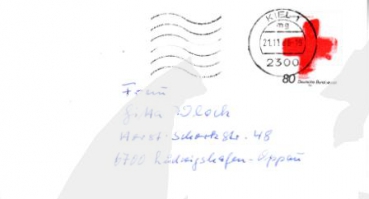 KIEL 1
mg
21.11
2300
80 Deutsche Bundespost
Frau
Horst-Schork-Str. 48
6700 Ludwigshafen-Oppau